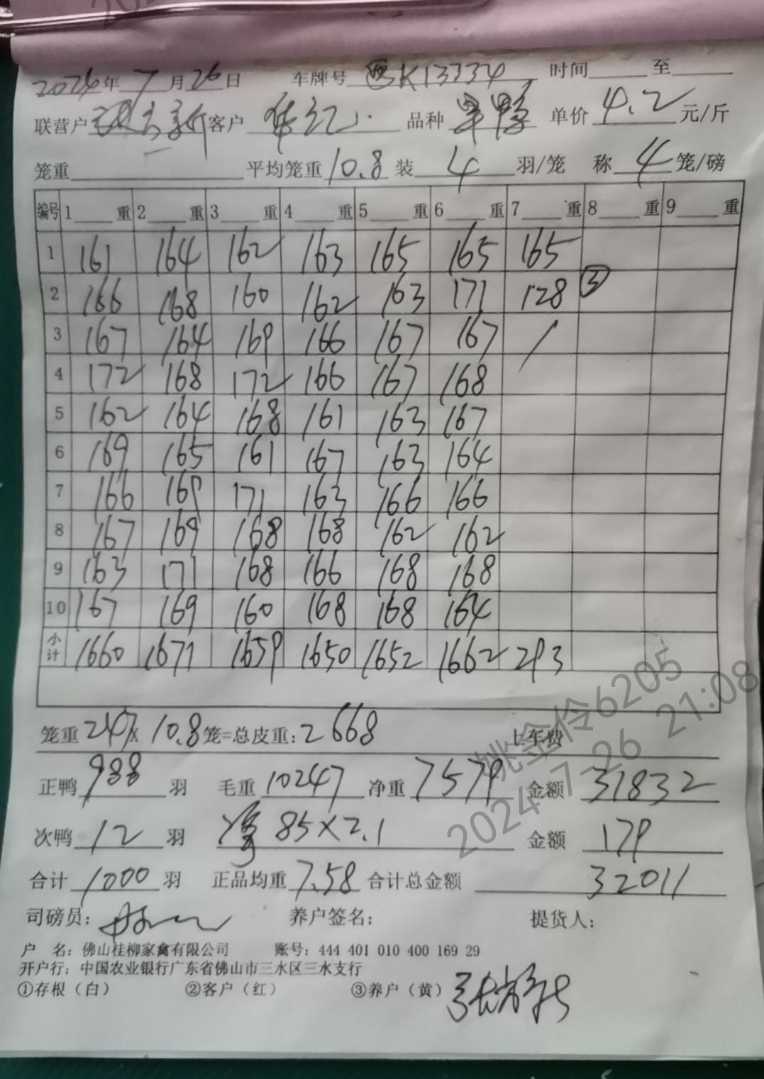 2024年7月26日 车牌号 粤K13334 时间 至
联营户 客户 华记 品种 旱鸭 单价 4.2 元/斤
笼重 平均笼重 10.8 装 4 羽/笼 称 4 笼/磅
编号 1 重 2 重 3 重 4 重 5 重 6 重 7 重 8 重 9 重
1 161 164 162 163 165 165 165
2 166 168 160 162 163 171 128 ③
3 167 164 169 166 167 167 /
4 172 168 172 166 167 168
5 162 164 168 161 163 167
6 169 165 161 167 163 164
7 166 169 171 163 166 166
8 167 169 168 168 162 162
9 163 171 168 166 168 168
10 167 169 160 168 168 164
小计 1660 1671 1659 1650 1652 1662 293
笼重 247 X 10.8 笼=总皮重: 2668 上车费
正鸭 988 羽 毛重 10247 净重 7579 金额 31832
次鸭 12 羽 净 85×2.1 金额 179
合计 1000 羽 正品均重 7.58 合计总金额 32011
司磅员: 养户签名: 提货人:
户 名: 佛山桂柳家禽有限公司 账号: 444 401 010 400 169 29
开户行: 中国农业银行广东省佛山市三水区三水支行
①存根（白） ②客户（红） ③养户（黄）
姚金伶6205
2024-7-26 21:08